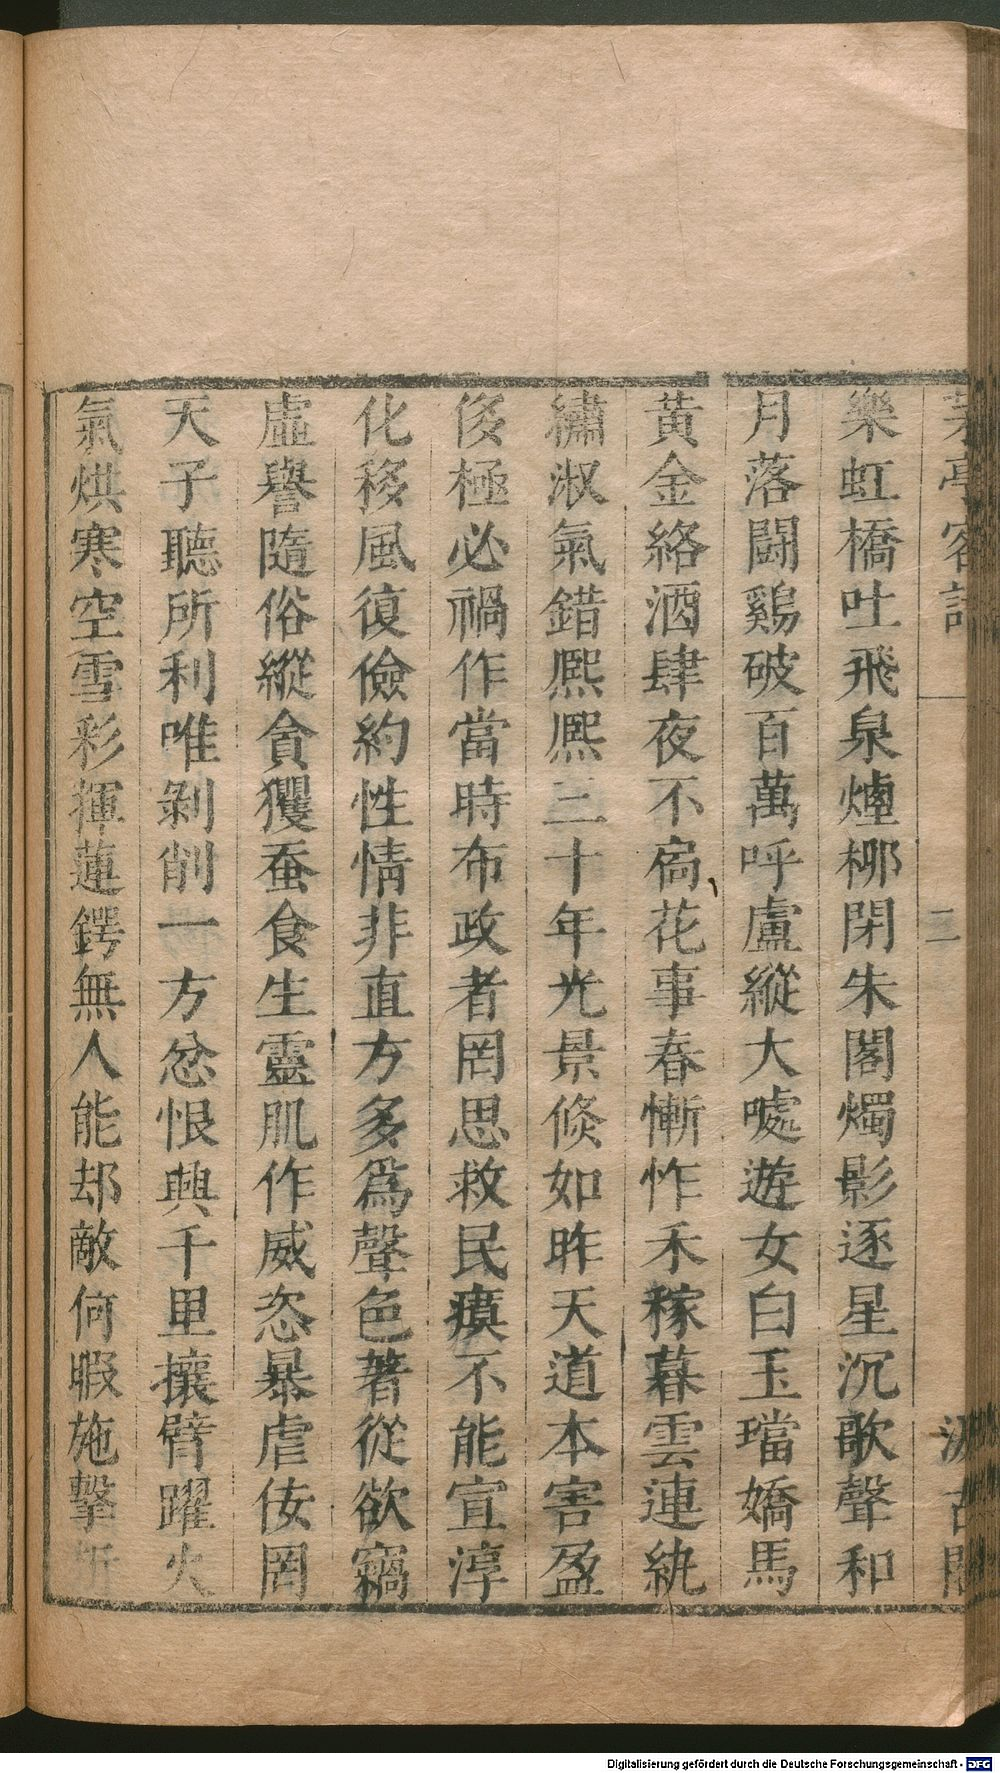 茅亭客話
二
汲古閣
樂虹橋吐飛泉煙栁閉朱閣燭影逐星沉歌聲和
月落鬪鷄破百萬呼盧縱大噱遊女白玉璫嬌馬
黃金絡酒肆夜不扃花事春慚怍禾稼暮雲連紈
繡淑氣錯熈熈三十年光景倏如昨天道本害盈
侈極必禍作當時布政者罔思救民瘼不能宣淳
化移風復儉約性情非直方多爲聲色著從欲竊
虛譽隨俗縱貪玃蚕食生靈肌作威恣暴虐佞罔
天子聽所利唯剝削一方忿恨興千里攘臂躍火
氣烘寒空雪彩揮蓮鍔無人能却敵何暇施擊柝
Digitalisierung gefördert durch die Deutsche Forschungsgemeinschaft - DFG